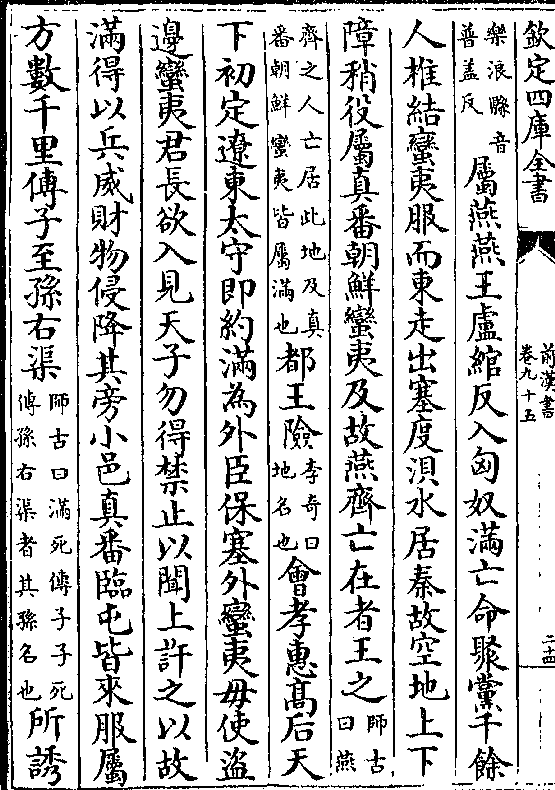 欽定四庫全書
前漢書
卷九十五
樂浪縣音
普蓋反
屬燕燕王盧綰反入匈奴滿亡命聚黨千餘
人椎結蠻夷服而東走出塞度浿水居秦故空地上下
障稍役屬真番朝鮮蠻夷及故燕齊亡在者王之
師古
曰燕
齊之人亡居此地及真
番朝鮮蠻夷皆屬滿也
都王險
李奇曰
地名也
會孝惠高后天
下初定遼東太守即約滿為外臣保塞外蠻夷毋使盜
邊蠻夷君長欲入見天子勿得禁止以聞上許之以故
滿得以兵威財物侵降其旁小邑真番臨屯皆來服屬
方數千里傳子至孫右渠
師古曰滿死傳子子死
傳孫右渠者其孫名也
所誘